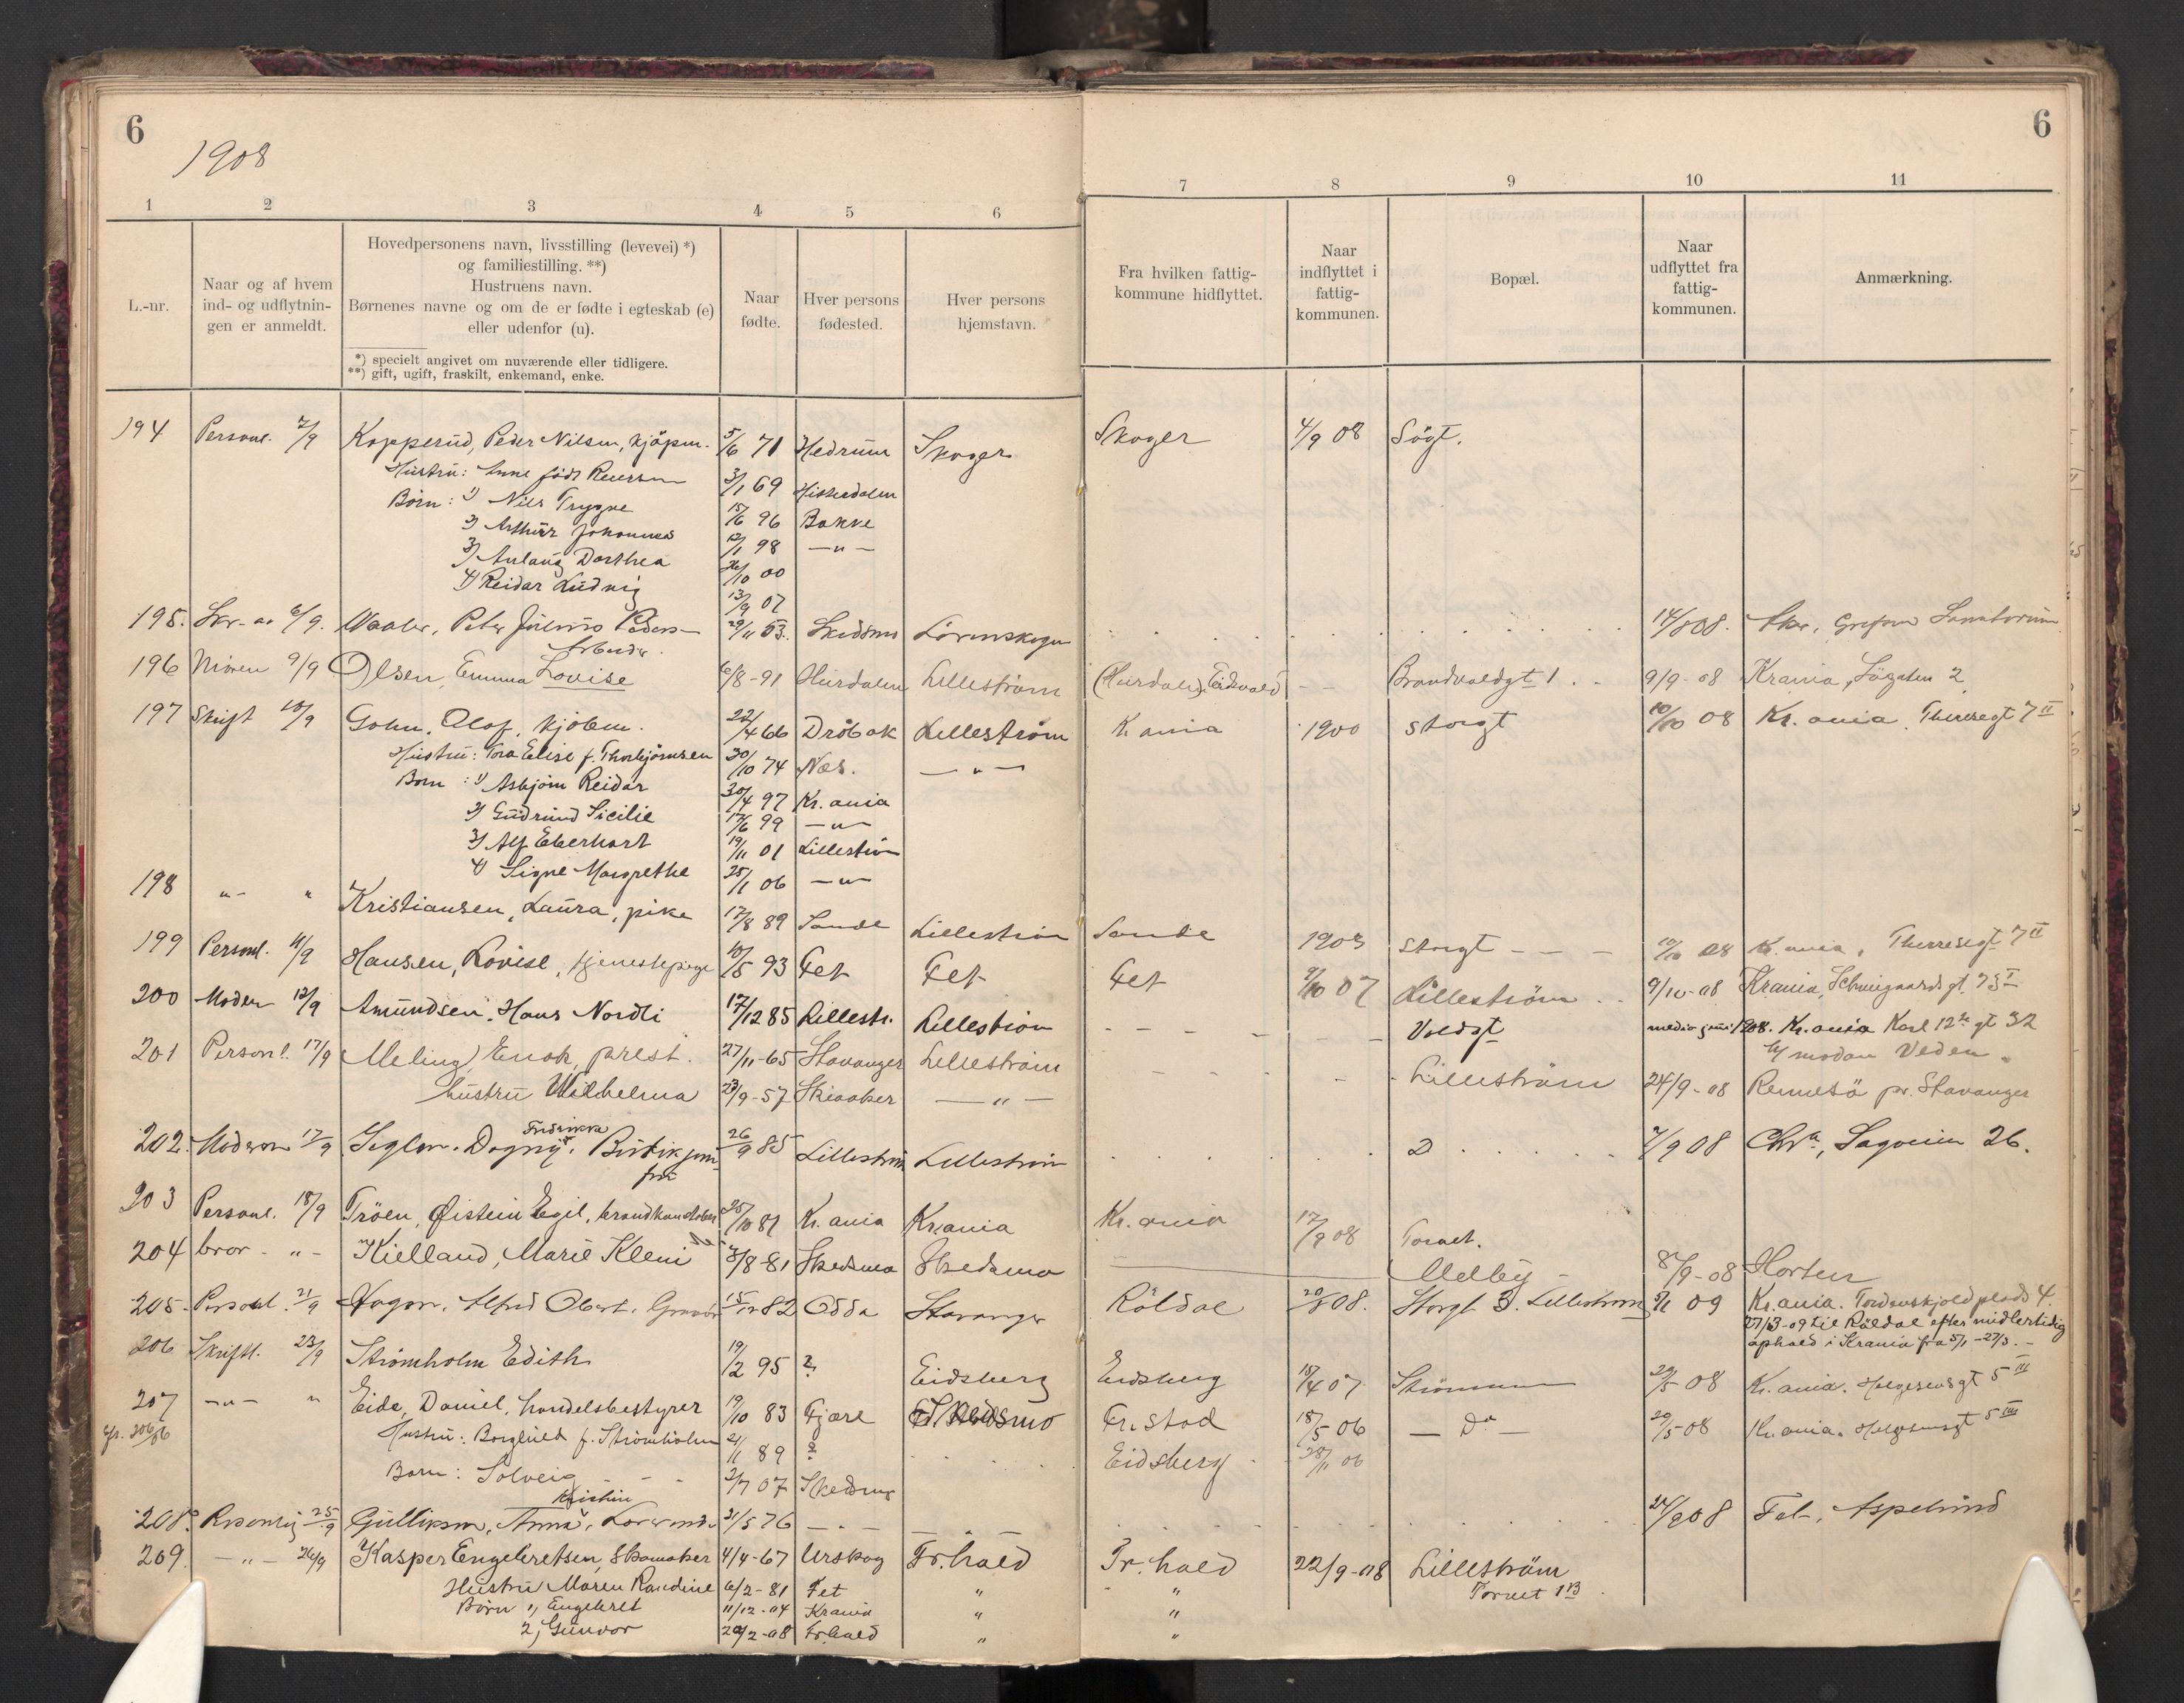 6
1908
1 2 3 4 5 6
L.-nr.
Naar og af hvem
ind- og udflytnin-
gen er anmeldt.
Hovedpersonens navn, livsstilling (levevei) *)
og familiestilling. **)
Hustruens navn.
Børnenes navne og om de er fødte i egteskab (e)
eller udenfor (u).
*) specielt angivet om nuværende eller tidligere.
**) gift, ugift, fraskilt, enkemand, enke.
Naar
fødte.
Hver persons
fødested.
Hver persons
hjemstavn.
6
7 8 9 10 11
Fra hvilken fattig-
kommune hidflyttet.
Naar
indflyttet i
fattig-
kommunen.
Bopæl.
Naar
udflyttet fra
fattig-
kommunen.
Anmærkning.
194 Personl. 2/9 Kopperud, Peder Nilsen, kjøpm. 5/6 71 Hedrum Skoger Skoger 4/9 08 Søgt.
Hustru: Anne født 3/1 69
Børn: 1) Nils Trygve 15/6 96 Bakke
2) Arthur Johannes 12/1 98 —"—
3) Anlaug Dorthea 26/10 00
4) Reidar Ludvig 13/9 07
195. 6/9. Vaaler, Peter Julius 29/11 53. Skedsmo Lørenskogen 14/8 08. Grefsen Sanatorium
Arbeider.
196 9/9 Olsen, Emma Lovise 6/8-91 Hurdalen Lillestrøm (Hurdalen) Eidsvold Brandvoldgt 1 9/9-08 Krania, Søgaten 2
197 Skrift 10/9 Gohn, Olof, kjøbm. 22/4 66 Drøbak Lillestrøm K ania 1900 Storgt 10/10 08 Kr. ania. Theresegt 7 II
Hustru: Tora Elise f. Thorbjørnsen 30/10 74 Nes. —"—
Børn: 1) Asbjørn Reidar 30/4 97 Kr. ania
2) Gudrund Sicilie 17/6 99 —"—
3) Alf Eberhart 19/11 01 Lillestrøm
4) Signe Margrethe 25/1 06 —"—
198 "- " Kristiansen, Laura, pike 17/8 89 Sande Lillestrøm Sande 1903 Storgt - - - 10/10 08 K. ania, Theresegt 7 II
199 Personl. 11/9 Hansen, Lovise, tjenestepige 10/5 93 Fet Fet Fet 9/10 07 Lillestrøm 9/10-08 Krania, Schweigaardsgt. 75 I
200 Moder 12/9 Amundsen. Hans Nordli 17/12 85 Lillestr. Lillestrøm Voldgt medio juni 1908. Kr. ania Karl 12te gt 32
201 Personl. 17/9 Meling, Enok, prest. 27/11-65 Stavanger Lillestrøm Lillestrøm 24/9-08 Rennesø pr. Stavanger
hustru Wilhelma 23/9-57 Skiaaker —"—
202. Moderen 17/9 Dagny Fredrikka 26/9 85 Lillestrøm Lillestrøm D 7/9 08 Chra, Sagveien 26.
203 Personl. 18/9 Trøen, Øistein Egil, 25/10 81 Kr. ania Kr.ania Kr. ania 17/9 08 Torvet.
204 bror - "- Kielland, Marie 3/8-81 Skedsmo Skedsmo Melby 8/9-08 Horten
205. Personl. 21/9 Hagen, Alfred Obert, 15/12 82 Odda Stavanger Røldal 20/8 08. Storgt 3. Lillestrøm 5/1 09 Kr. ania. Tordenskjoldplads 4.
27/3-09 til Røldal efter midlertidig
ophold i Krania fra 5/1-27/3. -
206 Skriftl. 23/9 Strømholm Edith 19/2 95 ? Eidsberg Eidsberg 15/4 07 Strømmen 29/5 08 Kr. ania. Helgesensgt 5 III
207 -"- " Eide, Daniel, handelsbestyrer 19/10 83 Fjære Skedsmo Fr. stad 18/5 06 — Do — 29/5-08 Kr. ania. Helgesensgt 5 III
Hustru: Borghild f. Strømholm 21/1 89 ? Eidsberg 28/11 06
Barn: Solveig 2/7 07 Skedsmo
208. 25/9 Gulliksen, Anna Kristin 31/5 76 — " — — " — 24/9 08 Fet, Aspelund
209. —"— 26/9 Kasper Engebretsen, Skomaker 4/4-67 Urskog Fr.hald Fr. hald 22/9-08 Lillestrøm
Torvet 1 B
Hustru Maren Randine 6/2-81 Fet " "
Børn 1, Engebret 11/12-04 Krania " "
2, Gunvor 20/2-08 Fr.hald " "